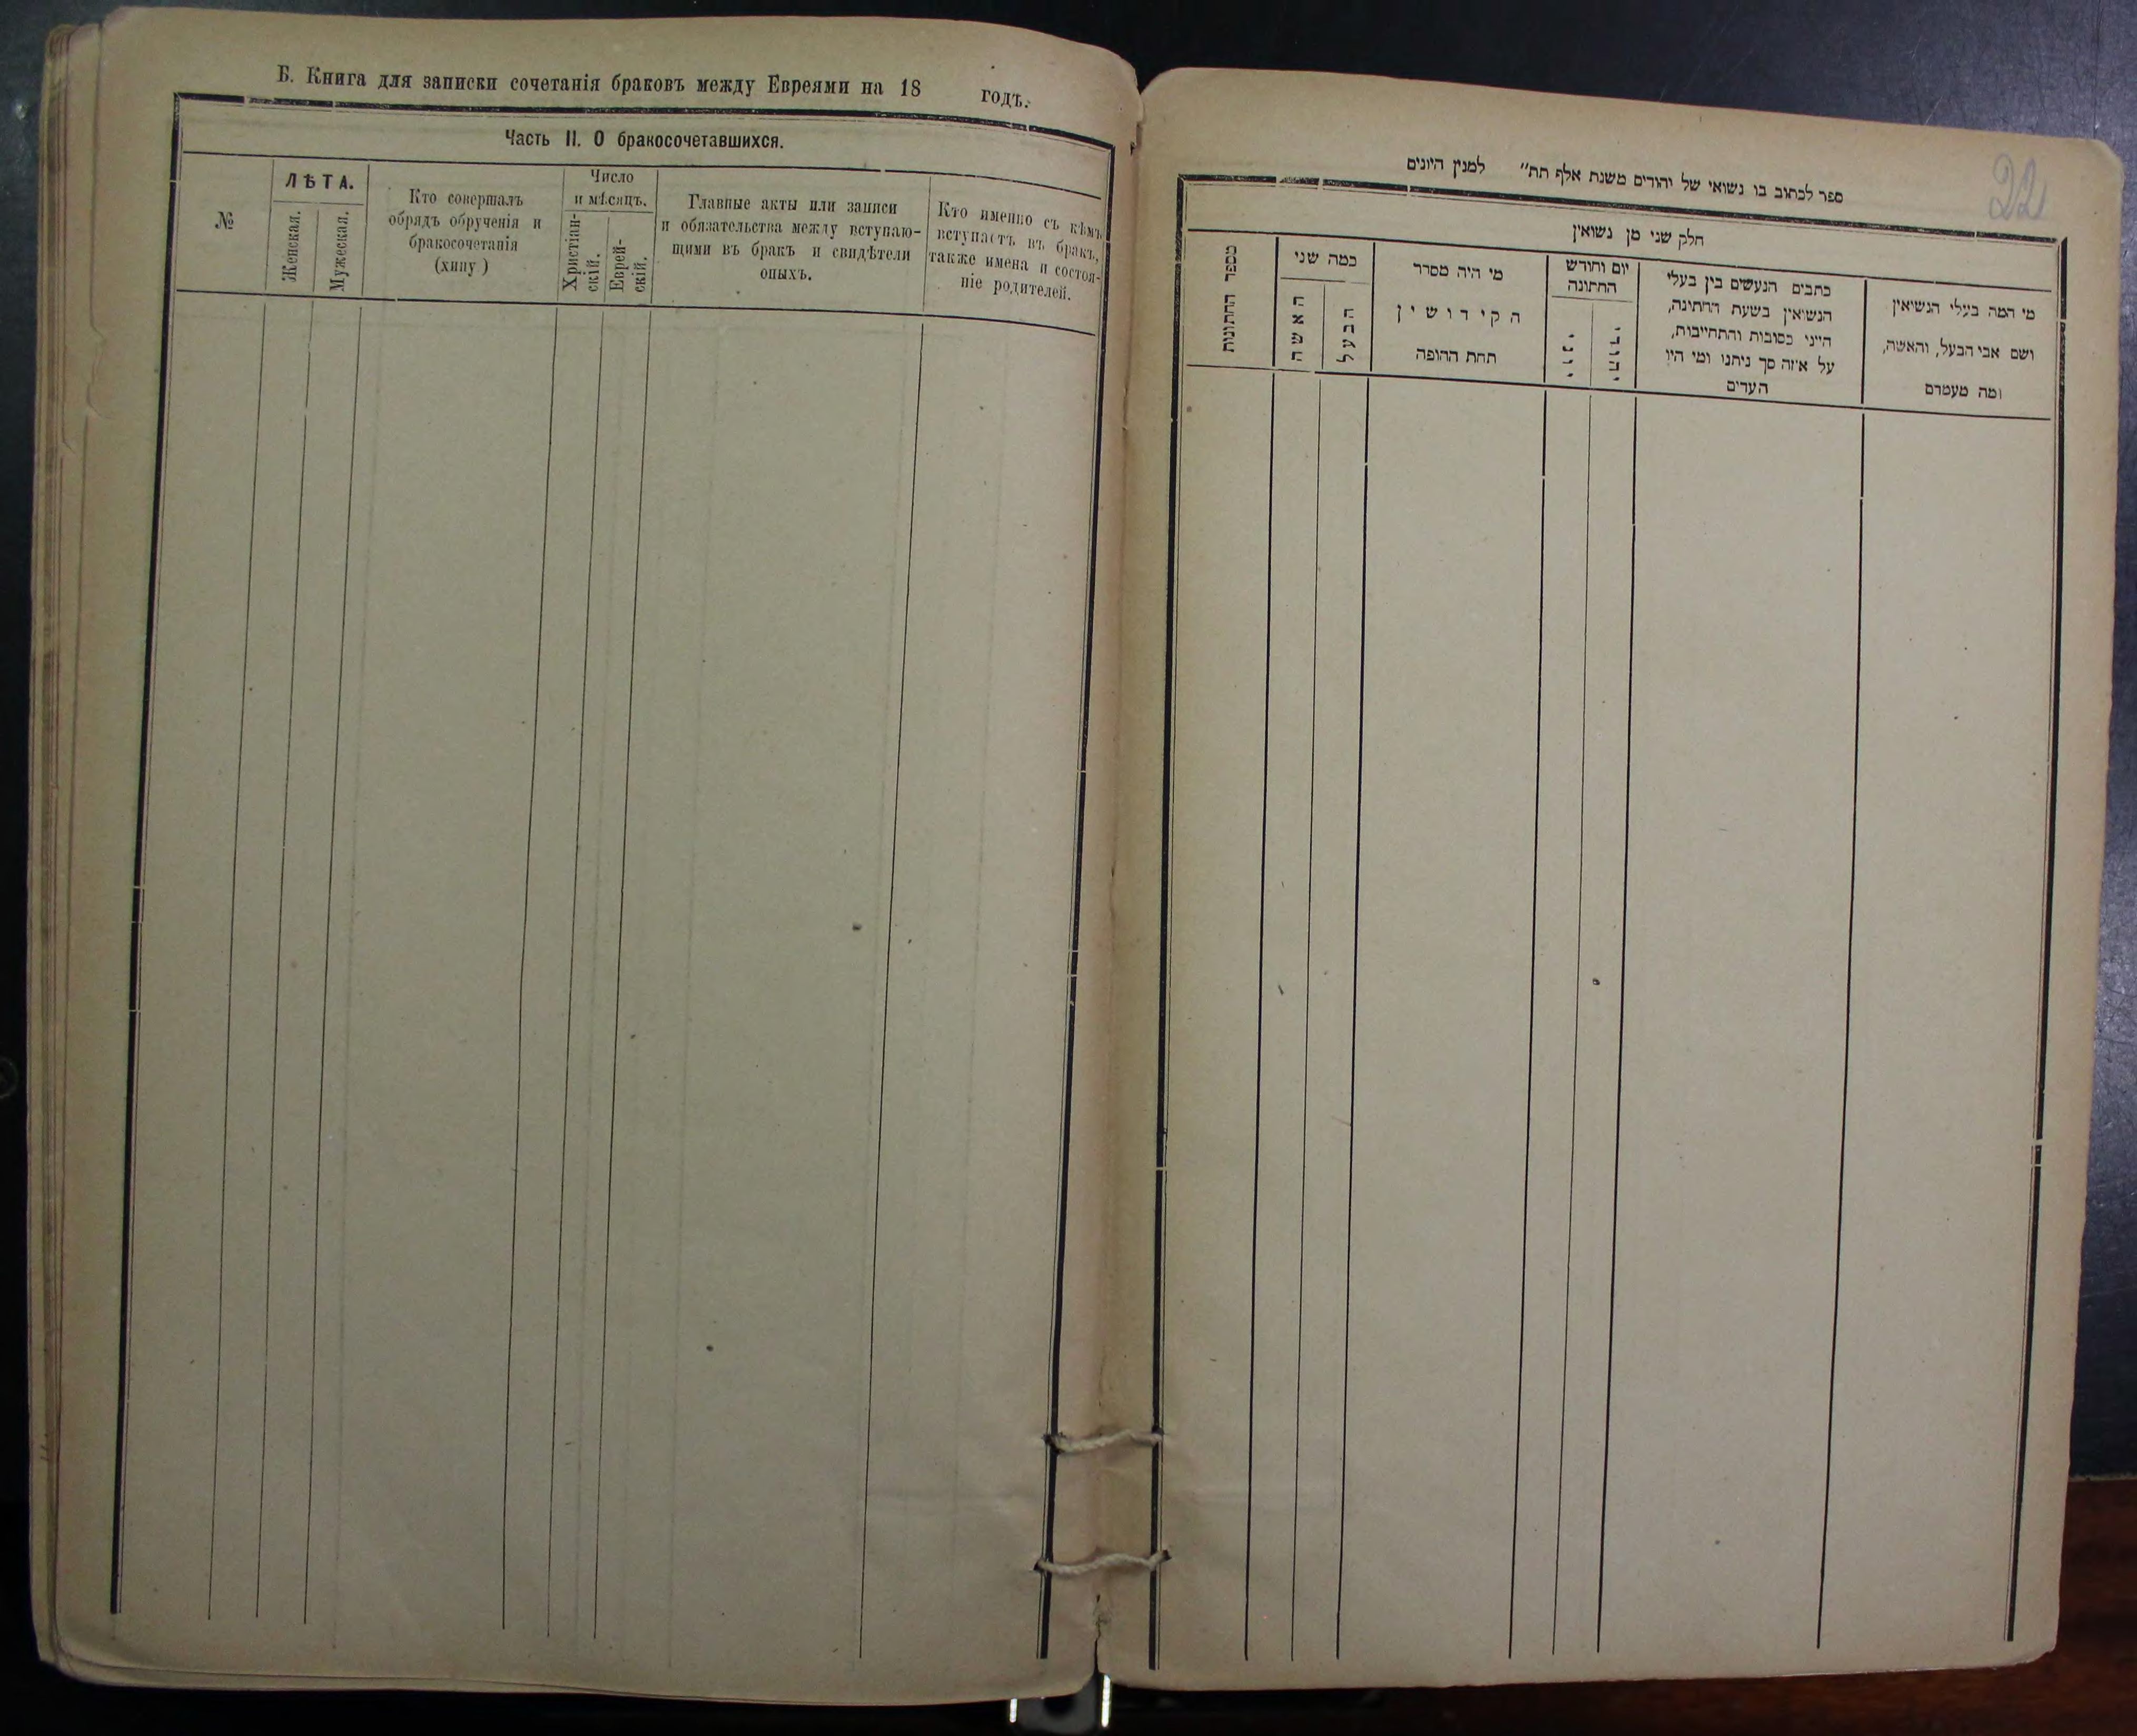 Б. Книга для записки сочетанія браковъ между Евреями на 18 годъ.
Часть II. О бракосочетавшихся.
№
ЛѢТА.
Женская.
Мужеская.
Кто совершалъ
обрядъ обрученія и
бракосочетанія
(хипу)
Число
и мѣсяцъ.
Христіан-
скій.
Еврей-
скій.
Главные акты или записи
и обязательства между вступаю-
щими въ бракъ и свидѣтели
оныхъ.
Кто именно съ кѣмъ
вступаетъ въ бракъ,
также имена и состоя-
ніе родителей.
22
ספר לכתוב בו נשואי של יהודים משנת אלף תת״ למנין היונים
חלק שני מן נשואין
מספר החתונות
כמה שני
האשה
הבעל
מי היה מסדר
הקידושין
תחת החופה
יום וחודש
החתונה
יוני
יהודי
כתבים הנעשים בין בעלי
הנשואין בשעת החתונה,
היינו כסובות והתחייבות,
על איזה סך ניתנו ומי היו
העדים
מי המה בעלי הנשואין
ושם אבי הבעל, והאשה,
ומה מעמדם